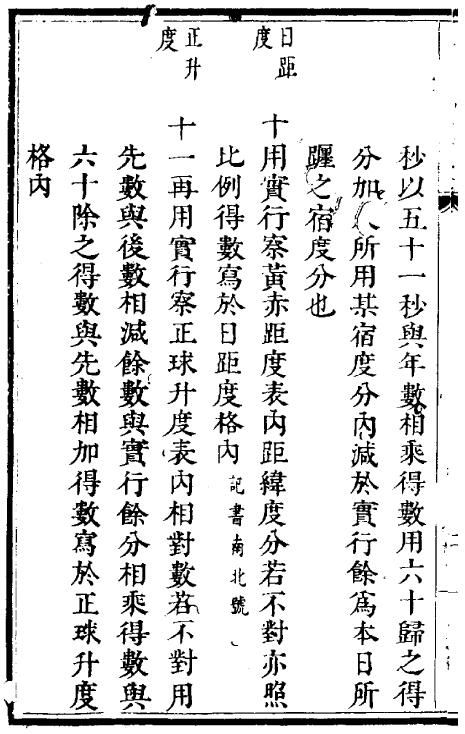 秒以五十一秒與年數相乘得數用六十歸之得
分加入所用某宿度分內減於實行餘爲本日所
躔之宿度分也
日距度
十用實行察黃赤距度表內距緯度分若不對亦照
比例得數寫於日距度格內記書南北號
正升度
十一再用實行察正球升度表內相對數若不對用
先數與後數相減餘數與實行餘分相乘得數與
六十除之得數與先數相加得數寫於正球升度
格內